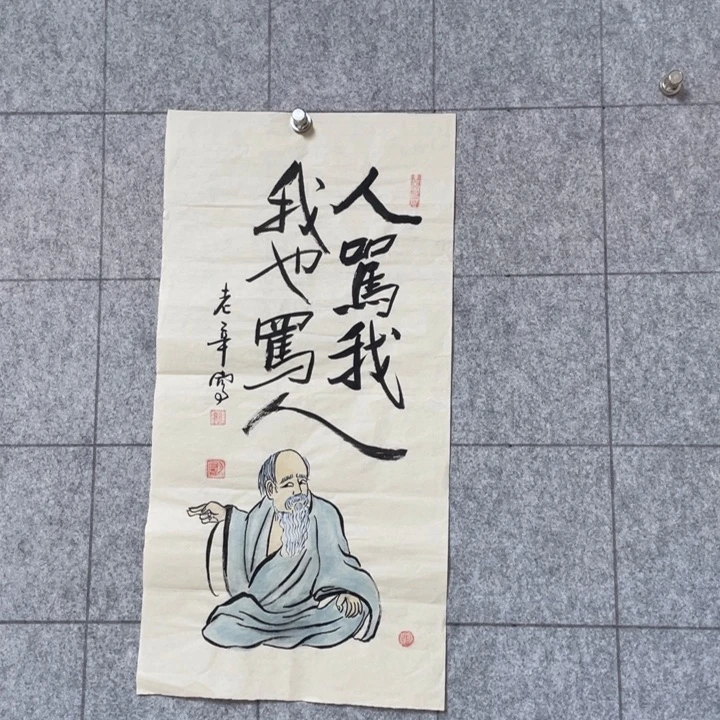 人駡我
我也罵人
老辛寫